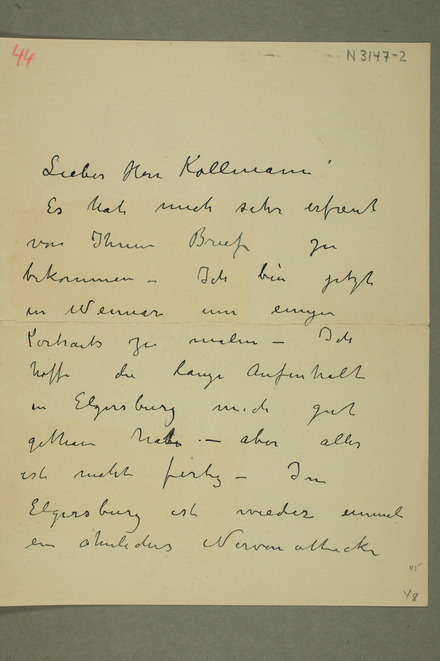 44
N 3147-2
Lieber Herr Kollmann!
Es hat mich sehr erfreut
von Ihnen Brief zu
bekommen – Ich bin jetzt
in Weimar um einige
Portraits zu malen – Ich
hoffe die lange Aufenhalt
in Elgersburg mich gut
gethan habe. – aber alles
ist nicht fertig – In
Elgersburg ist wieder einmal
ein Nerven attacke
45
48